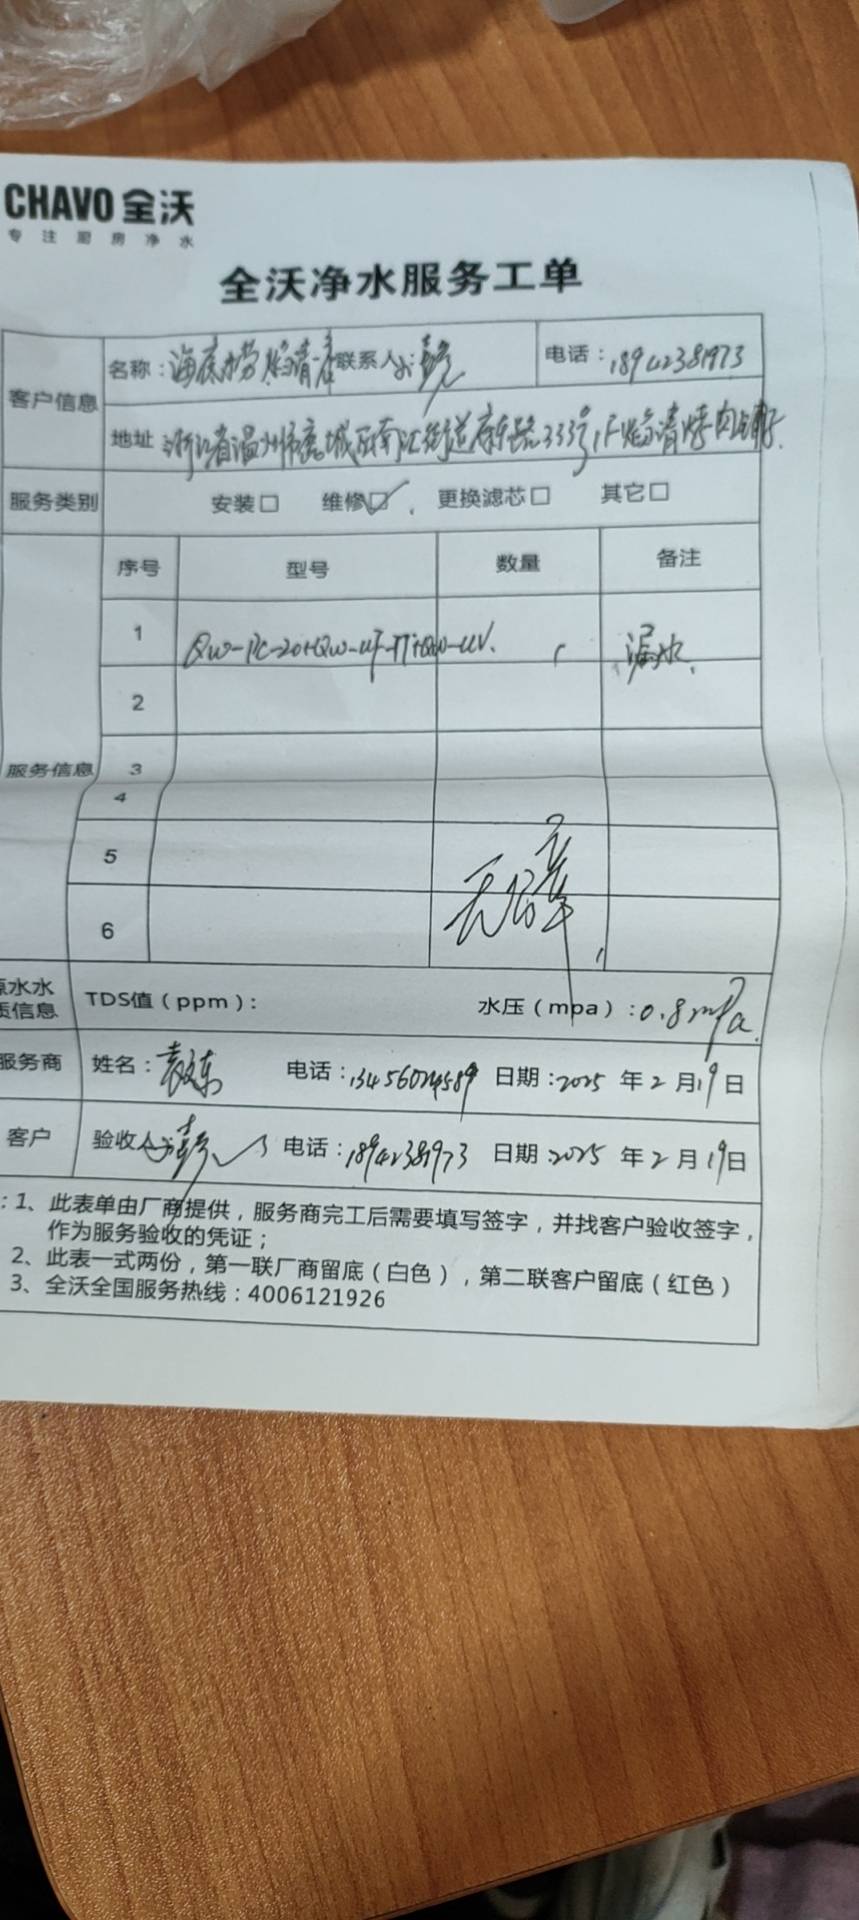 CHAVO 全沃
专注厨房净水
全沃净水服务工单
客户信息
名称：海底捞焰请店 联系人：小彭 电话：18942381973
地址 浙江省温州市鹿城区南汇街道 路333号1F焰请烤肉铺子
服务类别 安装□ 维修☑ 更换滤芯□ 其它□
序号 型号 数量 备注
1 QW-PC-20+QW-UF-1T+QW-UV 1 漏水
2
服务信息 3
4
5
无公章
6
原水水质信息 TDS值（ppm）： 水压（mpa）：0.8mpa
服务商 姓名： 电话：13456024589 日期：2025 年 2 月 19 日
客户 验收人：小彭 电话：18942381973 日期：2025 年 2 月 19 日
：1、此表单由厂商提供，服务商完工后需要填写签字，并找客户验收签字，
作为服务验收的凭证；
2、此表一式两份，第一联厂商留底（白色），第二联客户留底（红色）
3、全沃全国服务热线：4006121926